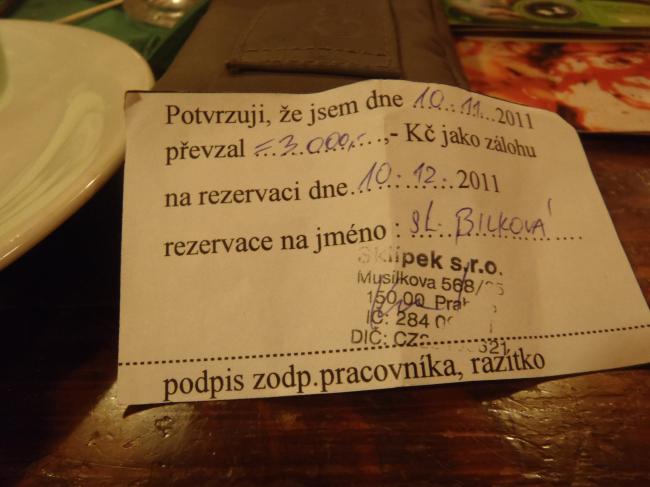 Potvrzuji, že jsem dne 10. 11. 2011
převzal =3.000,- ,- Kč jako zálohu
na rezervaci dne 10. 12. 2011
rezervace na jméno : sl. BILKOVÁ
Sklípek s.r.o.
Musílkova 568/
150 00 Praha
IČ: 284
DIČ: CZ
podpis zodp.pracovníka, razítko